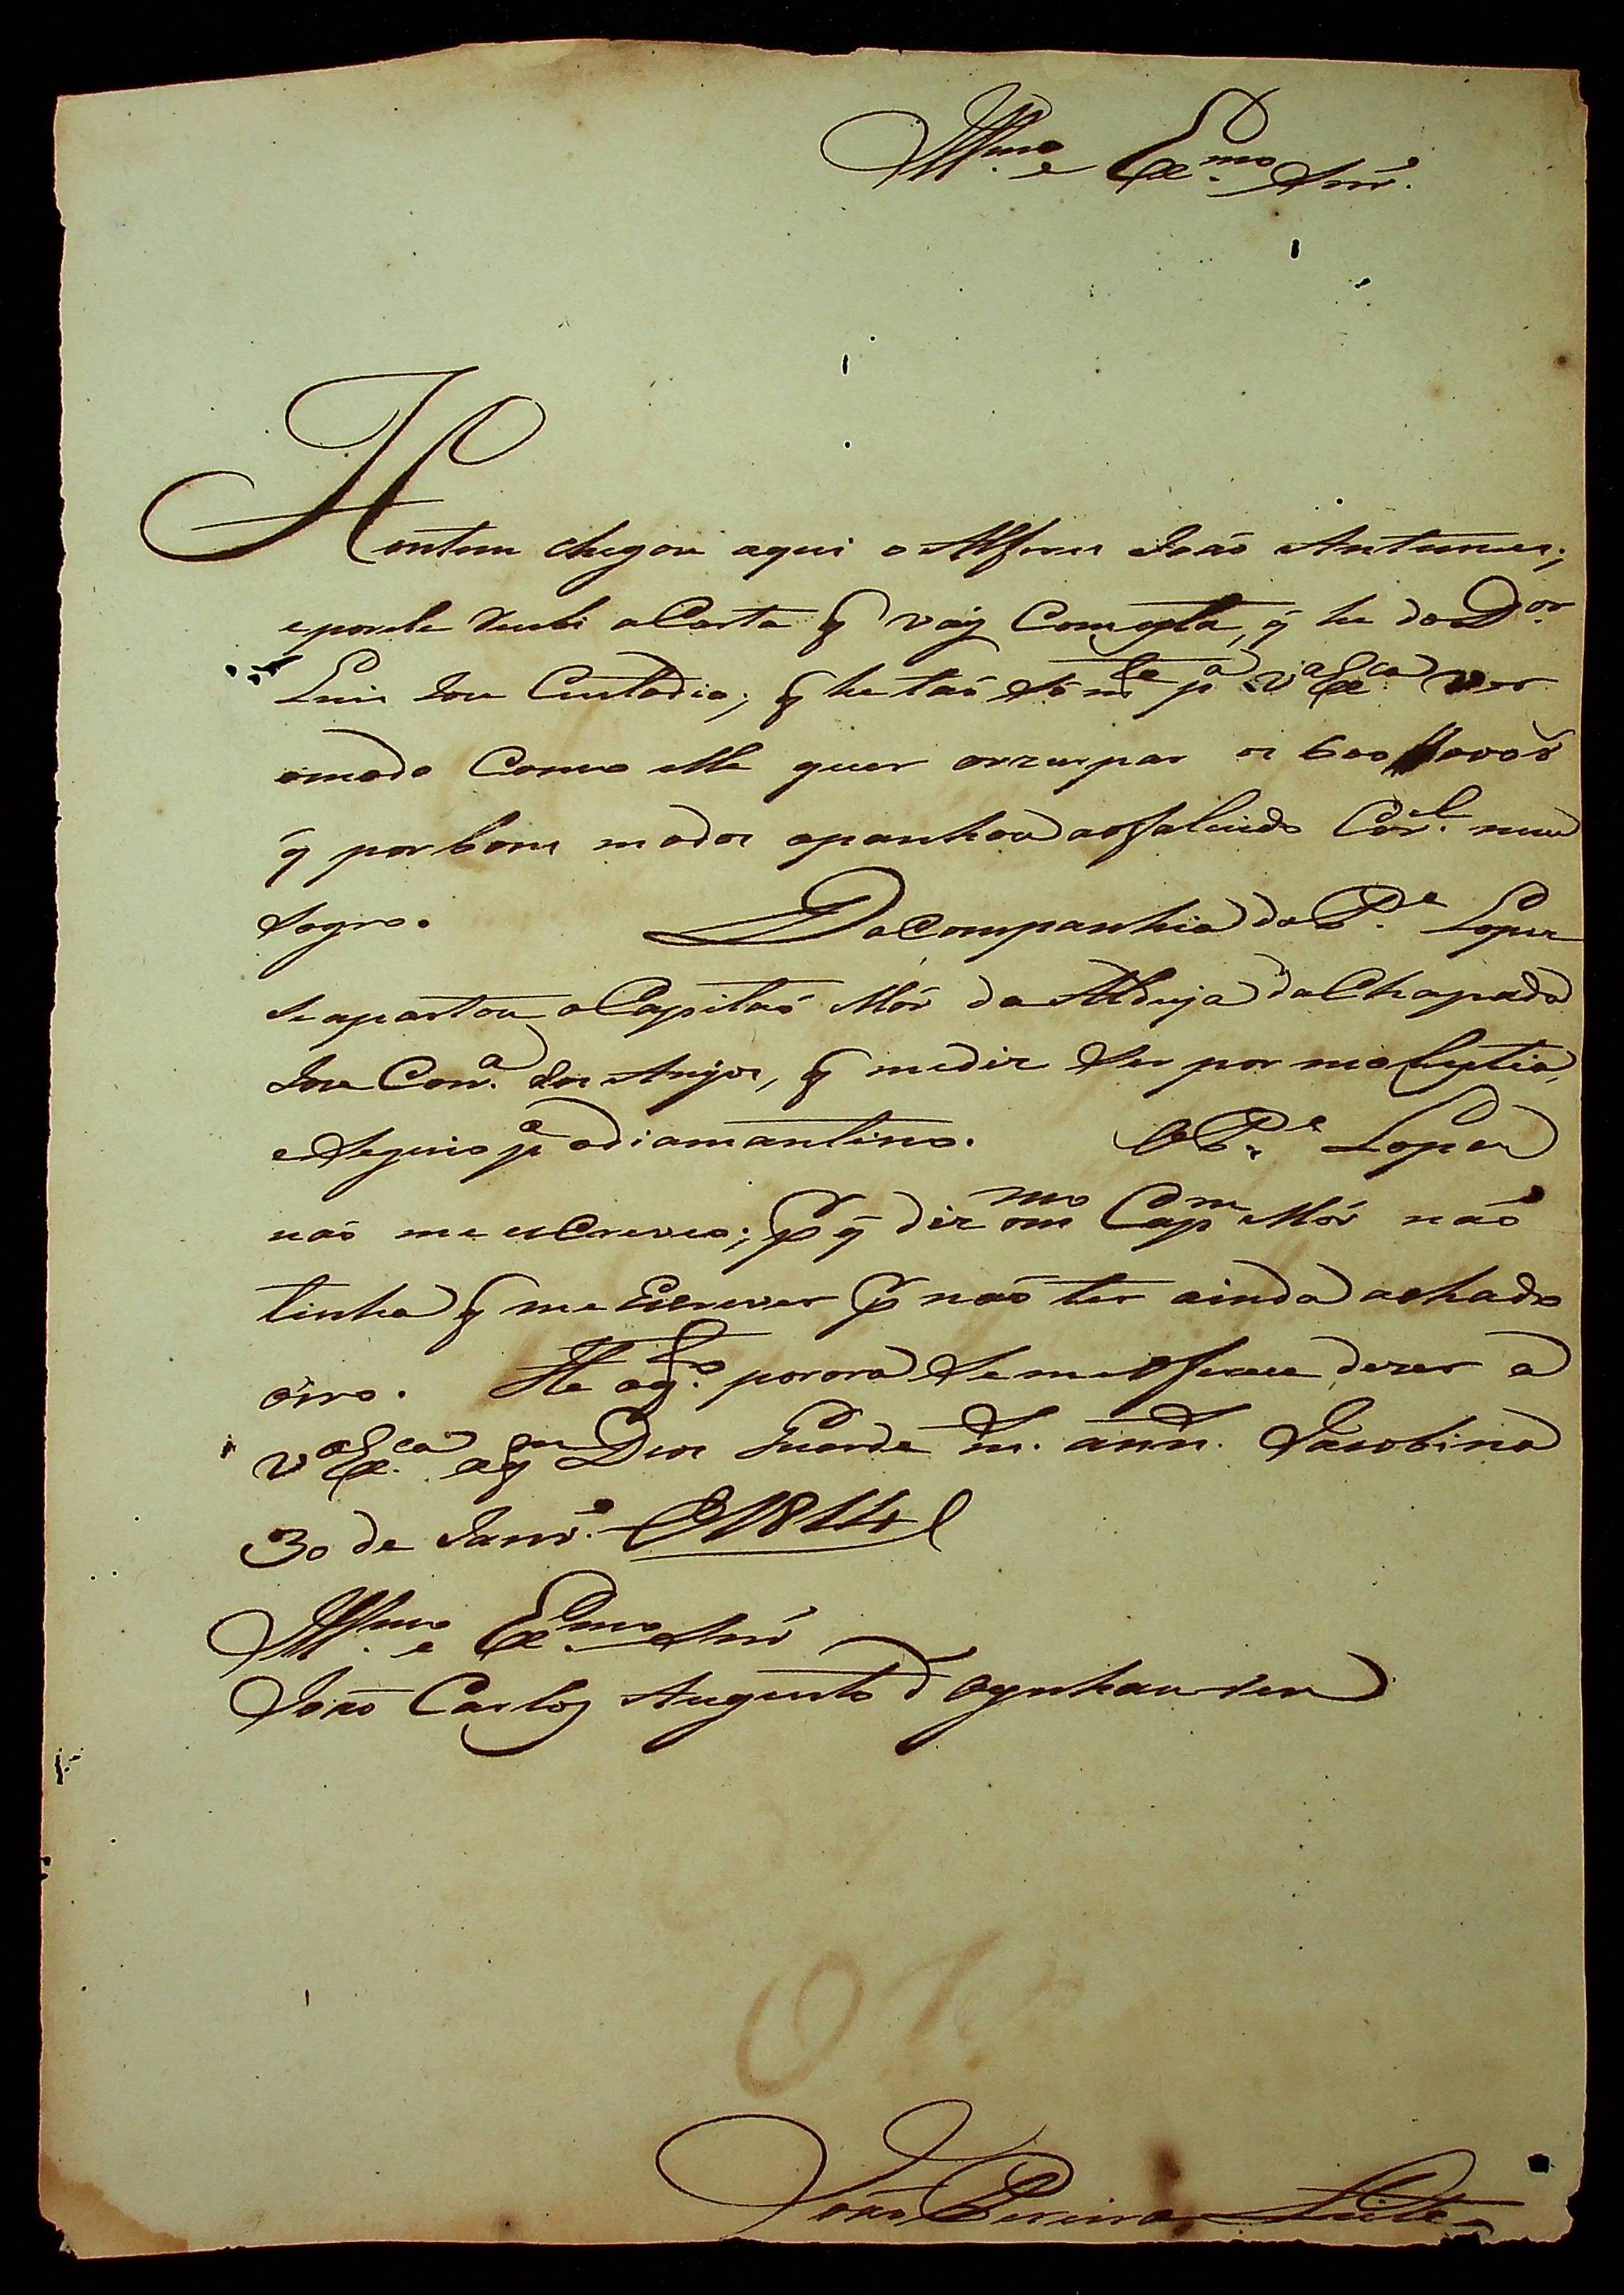 Illmo. e Exmo. Snr.
Hontem chegou aqui o Alferes João Antunes,
eporele recebi aCarta q vay Comesta, q he do Dor.
Luis Jose Custodio; q hetaõ sómte pa VaExca ver
omodo Como elle quer ocupar os 600
q porbons modos apanhou aofalecido Corel. meu
Sogro. DaCompanhia do Pe. Lopes
Seapartou oCapitaõ Mór da Aldeya daChapada
Jose Corra. dos Anjos, q mediz Ser por molestia,
eSeguio pa odiamantino. OPe. Lopes
naõ me escreveo; p q diz omo Capm Mór naõ
tinha q me Escrever p naõ ter ainda achado
oiro. He oq. porora Semeoferece dizer a
VaExca. aqm Deos Guarde m. ann. Jacobina
30 de Janro. de 1814
Illmo. e Exmo. Snr
João Carlos Augusto d'Oeynhausen
João Pereira Leite